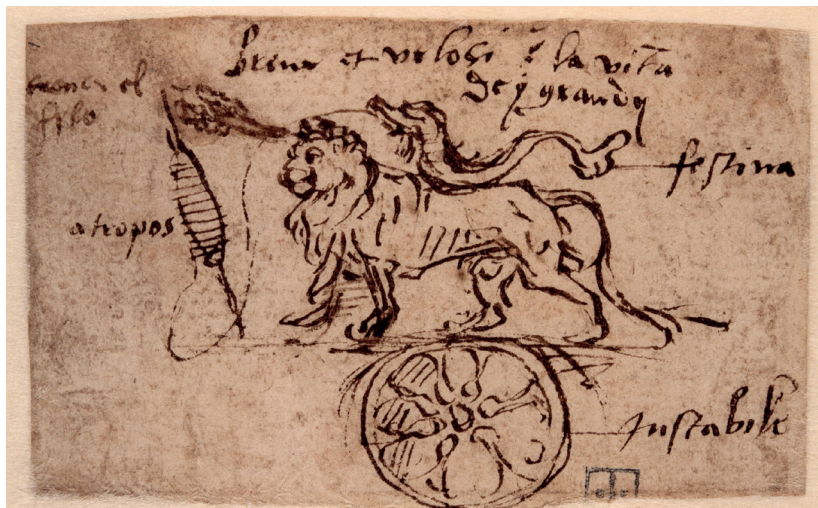 Breve et velosi e la vita
de i grandi
filo
festina
atropos
instabile